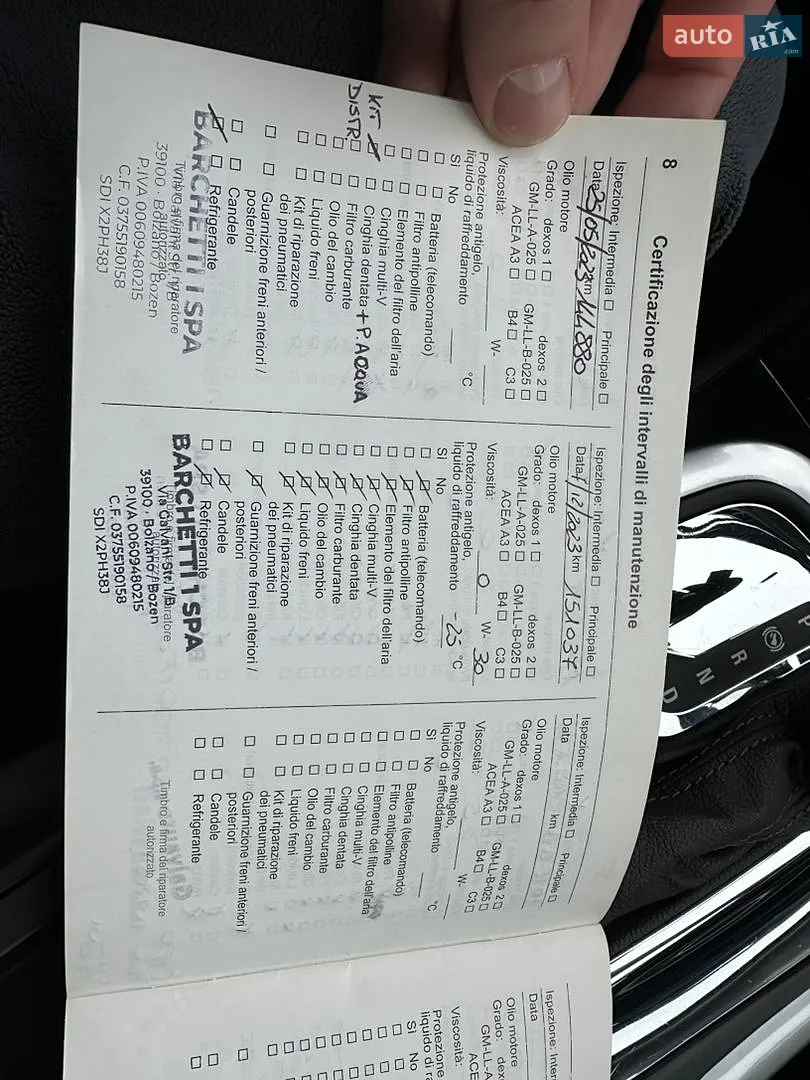 auto RIA .com
8
Certificazione degli intervalli di manutenzione
Ispezione: Intermedia ☐ Principale ☐
Data 25/05/2023 km 144880
Olio motore
Grado: dexos 1 ☐ dexos 2 ☐
GM-LL-A-025 ☐ GM-LL-B-025 ☐
ACEA A3 ☐ B4 ☐ C3 ☐
Viscosità: W-
Protezione antigelo,
liquido di raffreddamento °C
Sì No
☐ ☐ Batteria (telecomando)
☐ ☐ Filtro antipolline
☐ ☐ Elemento del filtro dell'aria
☐ ☐ Cinghia multi-V
KIT DISTR ☒ ☐ Cinghia dentata + P. ACQUA
☐ ☐ Filtro carburante
☐ ☐ Olio del cambio
☐ ☐ Liquido freni
☐ ☐ Kit di riparazione
dei pneumatici
☐ ☐ Guarnizione freni anteriori /
posteriori
☐ ☐ Candele
☒ ☐ Refrigerante
BARCHETTI 1 SPA
39100 - Bolzano / Bozen
P.IVA 00609480215
C.F. 03755190158
SDI X2PH38J
Ispezione: Intermedia ☐ Principale ☐
Data 1/12/2023 km 151037
Olio motore
Grado: dexos 1 ☐ dexos 2 ☐
GM-LL-A-025 ☐ GM-LL-B-025 ☐
ACEA A3 ☐ B4 ☐ C3 ☐
Viscosità: 0 W- 30
Protezione antigelo,
liquido di raffreddamento -25 °C
Sì No
☐ ☒ Batteria (telecomando)
☐ ☒ Filtro antipolline
☐ ☒ Elemento del filtro dell'aria
☐ ☒ Cinghia multi-V
☐ ☒ Cinghia dentata
☐ ☒ Filtro carburante
☐ ☒ Olio del cambio
☐ ☒ Liquido freni
☐ ☒ Kit di riparazione
dei pneumatici
☐ ☒ Guarnizione freni anteriori /
posteriori
☐ ☒ Candele
☐ ☒ Refrigerante
BARCHETTI 1 SPA
Via Galvani Str. 1/B
39100 - Bolzano / Bozen
P.IVA 00609480215
C.F. 03755190158
SDI X2PH38J
Ispezione: Intermedia ☐ Principale ☐
Data km
Olio motore
Grado: dexos 1 ☐ dexos 2 ☐
GM-LL-A-025 ☐ GM-LL-B-025 ☐
ACEA A3 ☐ B4 ☐ C3 ☐
Viscosità: W-
Protezione antigelo,
liquido di raffreddamento °C
Sì No
☐ ☐ Batteria (telecomando)
☐ ☐ Filtro antipolline
☐ ☐ Elemento del filtro dell'aria
☐ ☐ Cinghia multi-V
☐ ☐ Cinghia dentata
☐ ☐ Filtro carburante
☐ ☐ Olio del cambio
☐ ☐ Liquido freni
☐ ☐ Kit di riparazione
dei pneumatici
☐ ☐ Guarnizione freni anteriori /
posteriori
☐ ☐ Candele
☐ ☐ Refrigerante
Timbro e firma del riparatore
autorizzato
Ispezione: Inter
Data
Olio motore
Grado: dex
GM-LL-A
ACE
Viscosità:
Protezione
liquido di ra
Sì No
P
R
N
D